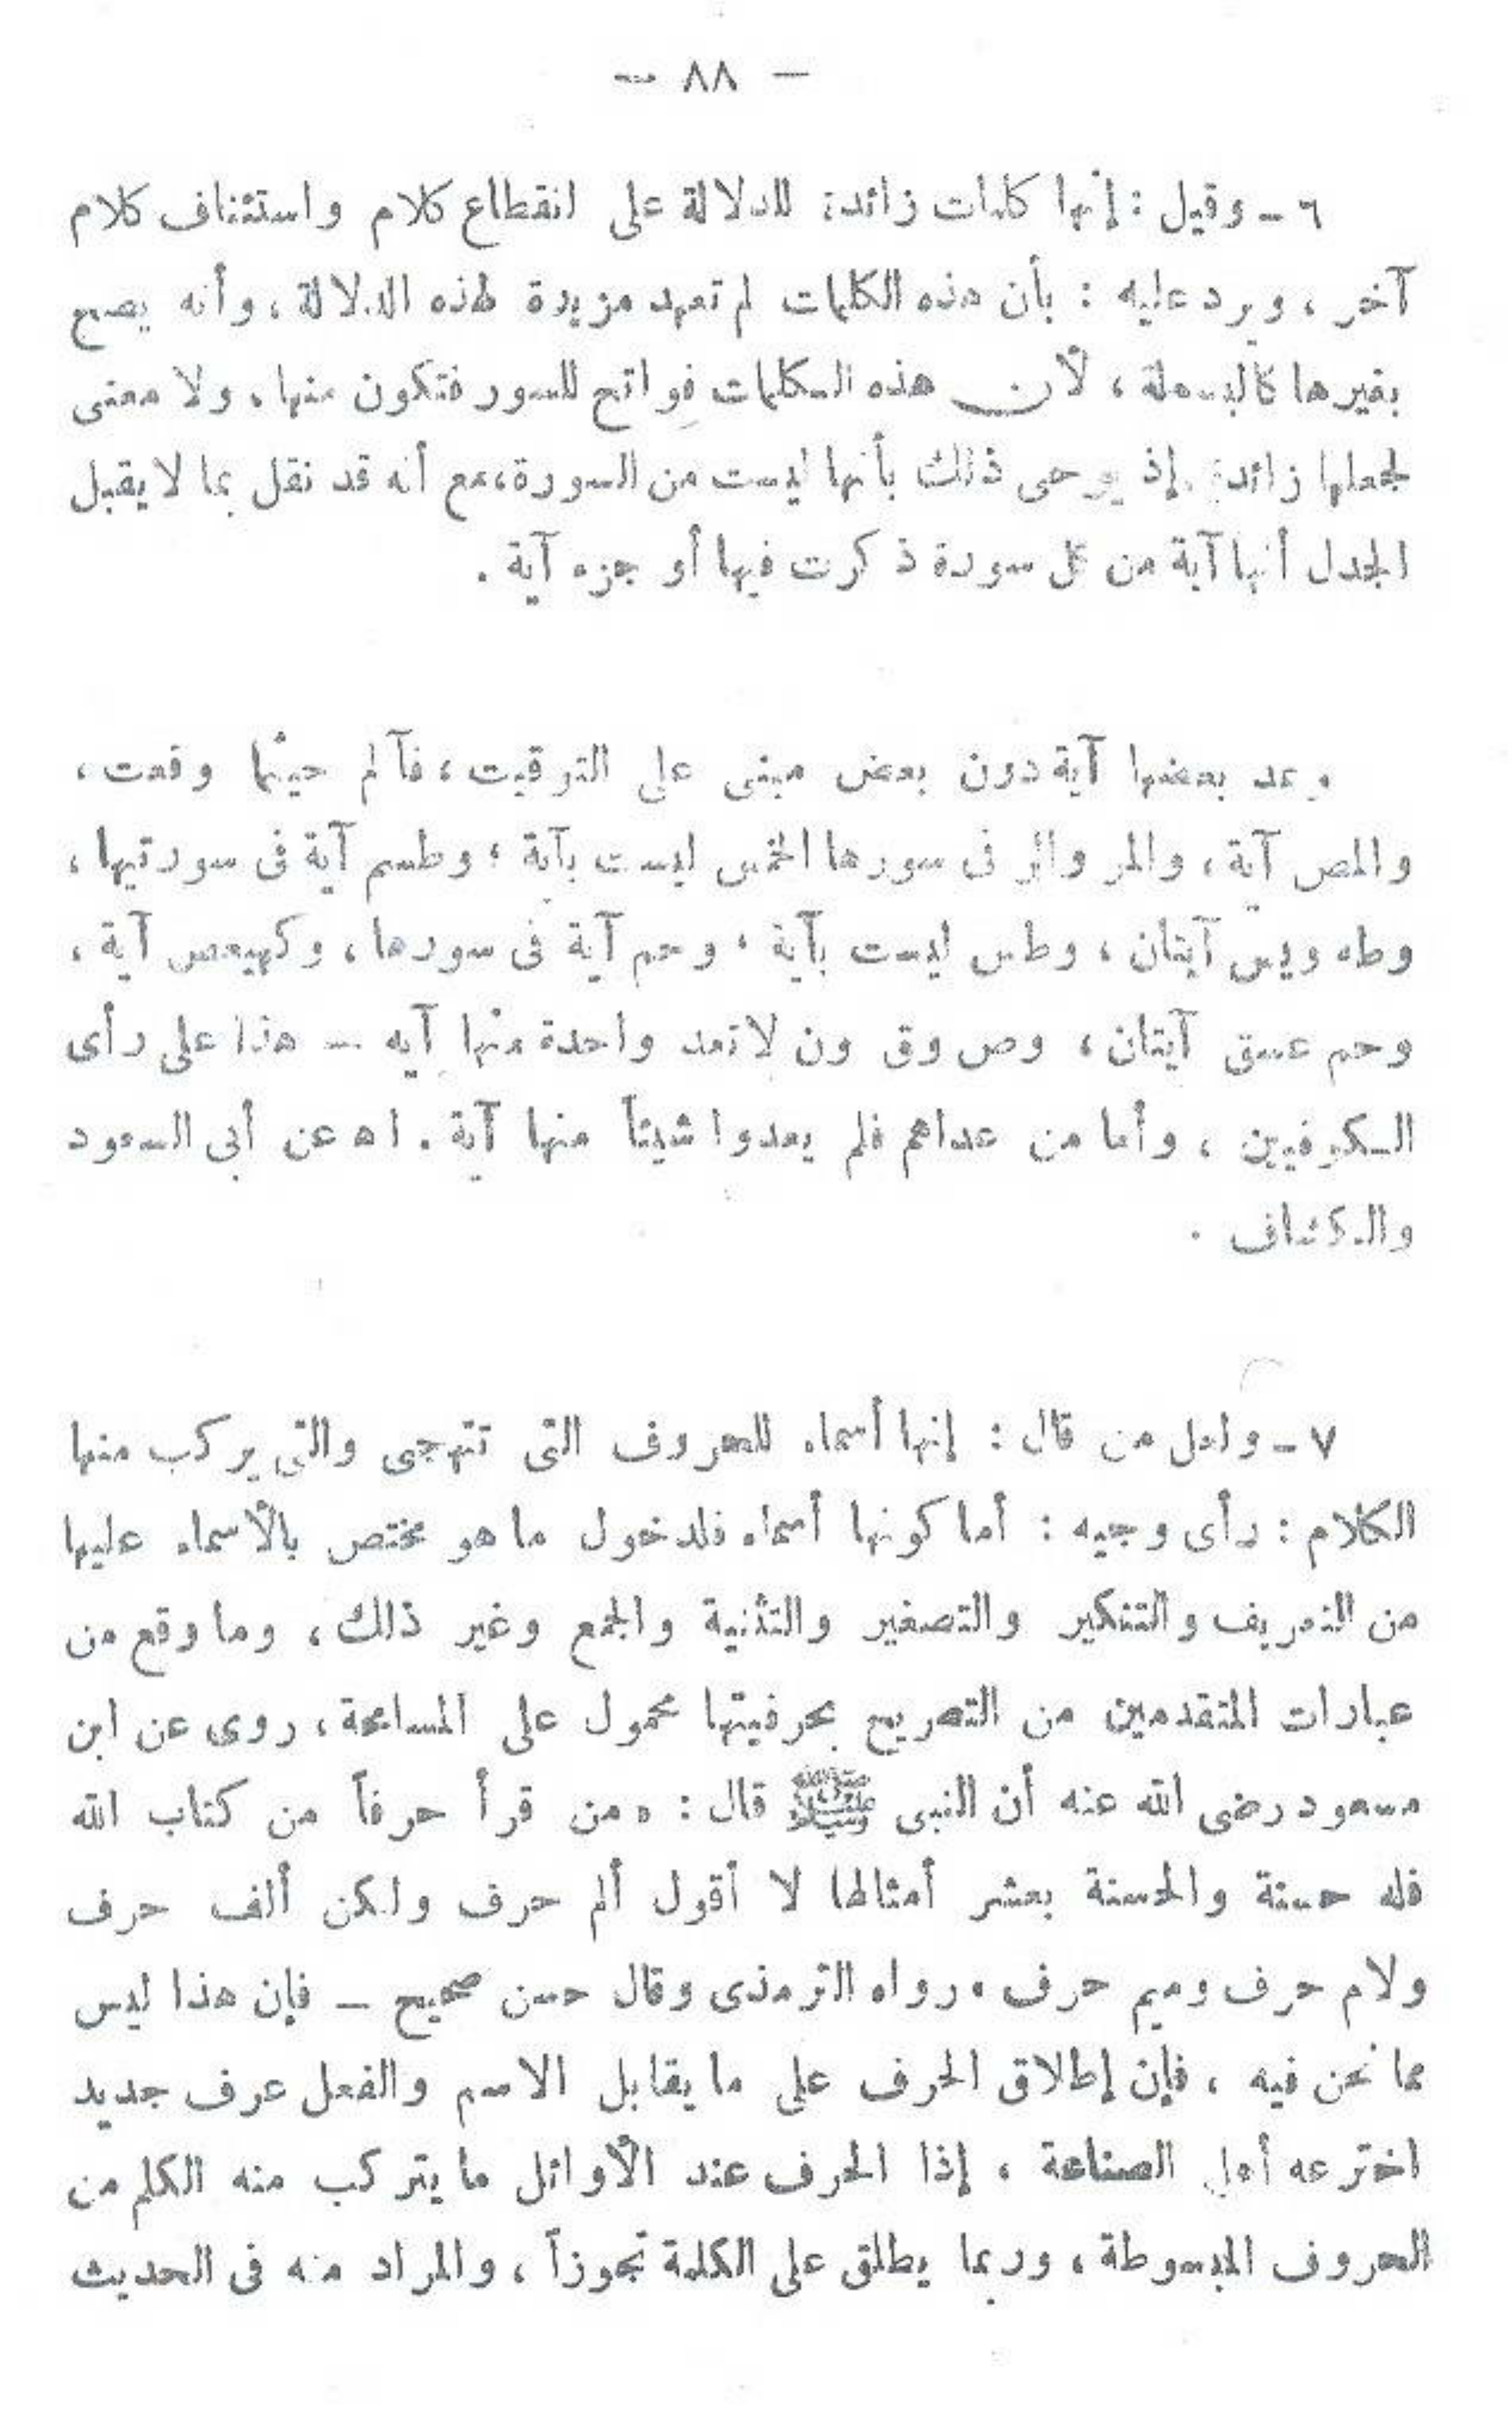 — ٨٨ —
٦ - وقيل : إنها كلمات زائدة للدلالة على انقطاع كلام واستئناف كلام
آخر ، ويرد عليه : بأن هذه الكلمات لم تعهد مزيدة لهذه الدلالة ، وأنه يصح
بغيرها كالبسملة ، لأن هذه الكلمات فواتح للسور فتكون منها ، ولا معنى
لجعلها زائدة إذ يوحى ذلك بأنها ليست من السورة ، مع أنه قد نقل بما لا يقبل
الجدل أنها آية من كل سورة ذكرت فيها أو جزء آية .
وعد بعضها آية دون بعض مبنى على التوقيت ، فآلم حيثما وقعت ،
والمص آية ، والمر والر فى سورها الخمس ليست بآية ، وطسم آية فى سورتيها ،
وطه ويس آيتان ، وطس ليست بآية ، وحم آية فى سورها ، وكهيعص آية ،
وحم عسق آيتان ، وص وق ون لا تعد واحدة منها آيه — هذا على رأى
الكوفيين ، وأما من عداهم فلم يعدوا شيئاً منها آية . اه عن أبى السعود
والكشاف .
٧ - ولعل من قال : إنها أسماء للحروف التى تتهجى والتى يركب منها
الكلام : رأى وجيه : أما كونها أسماء فلدخول ما هو مختص بالأسماء عليها
من التعريف والتنكير والتصغير والتثنية والجمع وغير ذلك ، وما وقع من
عبارات المتقدمين من التصريح بحرفيتها محمول على المسامحة ، روى عن ابن
مسعود رضى الله عنه أن النبى ﷺ قال : « من قرأ حرفاً من كتاب الله
فله حسنة والحسنة بعشر أمثالها لا أقول ألم حرف ولكن ألف حرف
ولام حرف وميم حرف » رواه الترمذى وقال حسن صحيح — فإن هذا ليس
مما نحن فيه ، فإن إطلاق الحرف على ما يقابل الاسم والفعل عرف جديد
اخترعه أهل الصناعة ، إذا الحرف عند الأوائل ما يتركب منه الكلم من
الحروف المبسوطة ، وربما يطلق على الكلمة تجوزاً ، والمراد منه فى الحديث